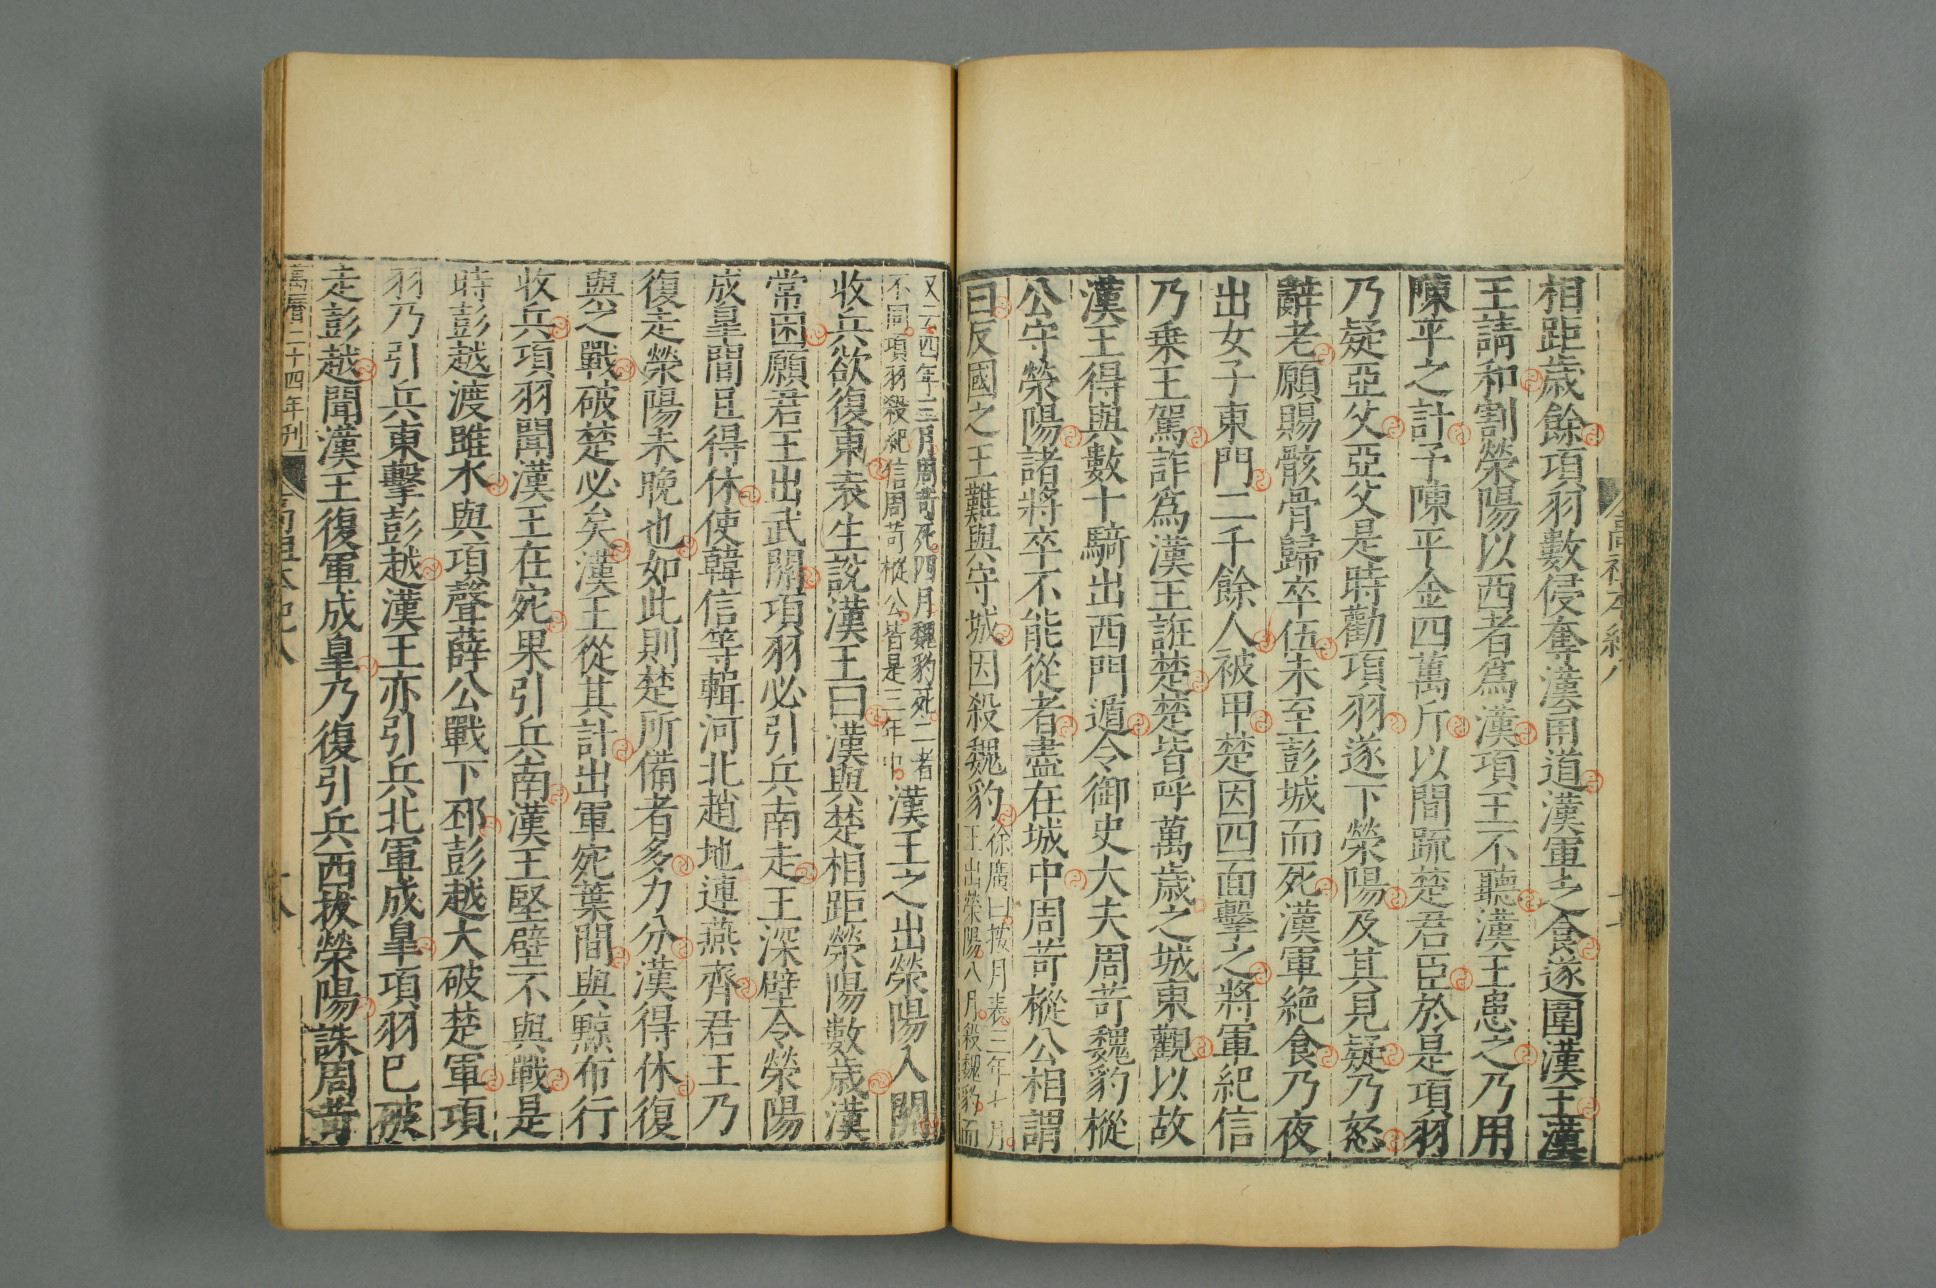 高祖本紀八
相距歲餘項羽數侵奪漢甬道漢軍乏食遂圍漢王漢
王請和割滎陽以西者爲漢項王不聽漢王患之乃用
陳平之計予陳平金四萬斤以間疏楚君臣於是項羽
乃疑亞父亞父是時勸項羽遂下滎陽及其見疑乃怒
辭老願賜骸骨歸卒伍未至彭城而死漢軍絕食乃夜
出女子東門二千餘人被甲楚因四面擊之將軍紀信
乃乘王駕詐爲漢王誑楚楚皆呼萬歲之城東觀以故
漢王得與數十騎出西門遁令御史大夫周苛魏豹樅
公守滎陽諸將卒不能從者盡在城中周苛樅公相謂
曰反國之王難與守城因殺魏豹
徐廣曰按月表三年七月
王出滎陽八月殺魏豹而
又云四年三月周苛死四月魏豹死二者
不同項羽殺紀信周苛樅公皆是三年中
漢王之出滎陽入關
收兵欲復東袁生說漢王曰漢與楚相距滎陽數歲漢
常困願君王出武關項羽必引兵南走王深壁令滎陽
成皐間且得休使韓信等輯河北趙地連燕齊君王乃
復走滎陽未晚也如此則楚所備者多力分漢得休復
與之戰破楚必矣漢王從其計出軍宛葉間與黥布行
收兵項羽聞漢王在宛果引兵南漢王堅壁不與戰是
時彭越渡睢水與項聲薛公戰下邳彭越大破楚軍項
羽乃引兵東擊彭越漢王亦引兵北軍成皐項羽已破
走彭越聞漢王復軍成皐乃復引兵西拔滎陽誅周苛
萬曆二十四年刊
高祖本紀八
十八